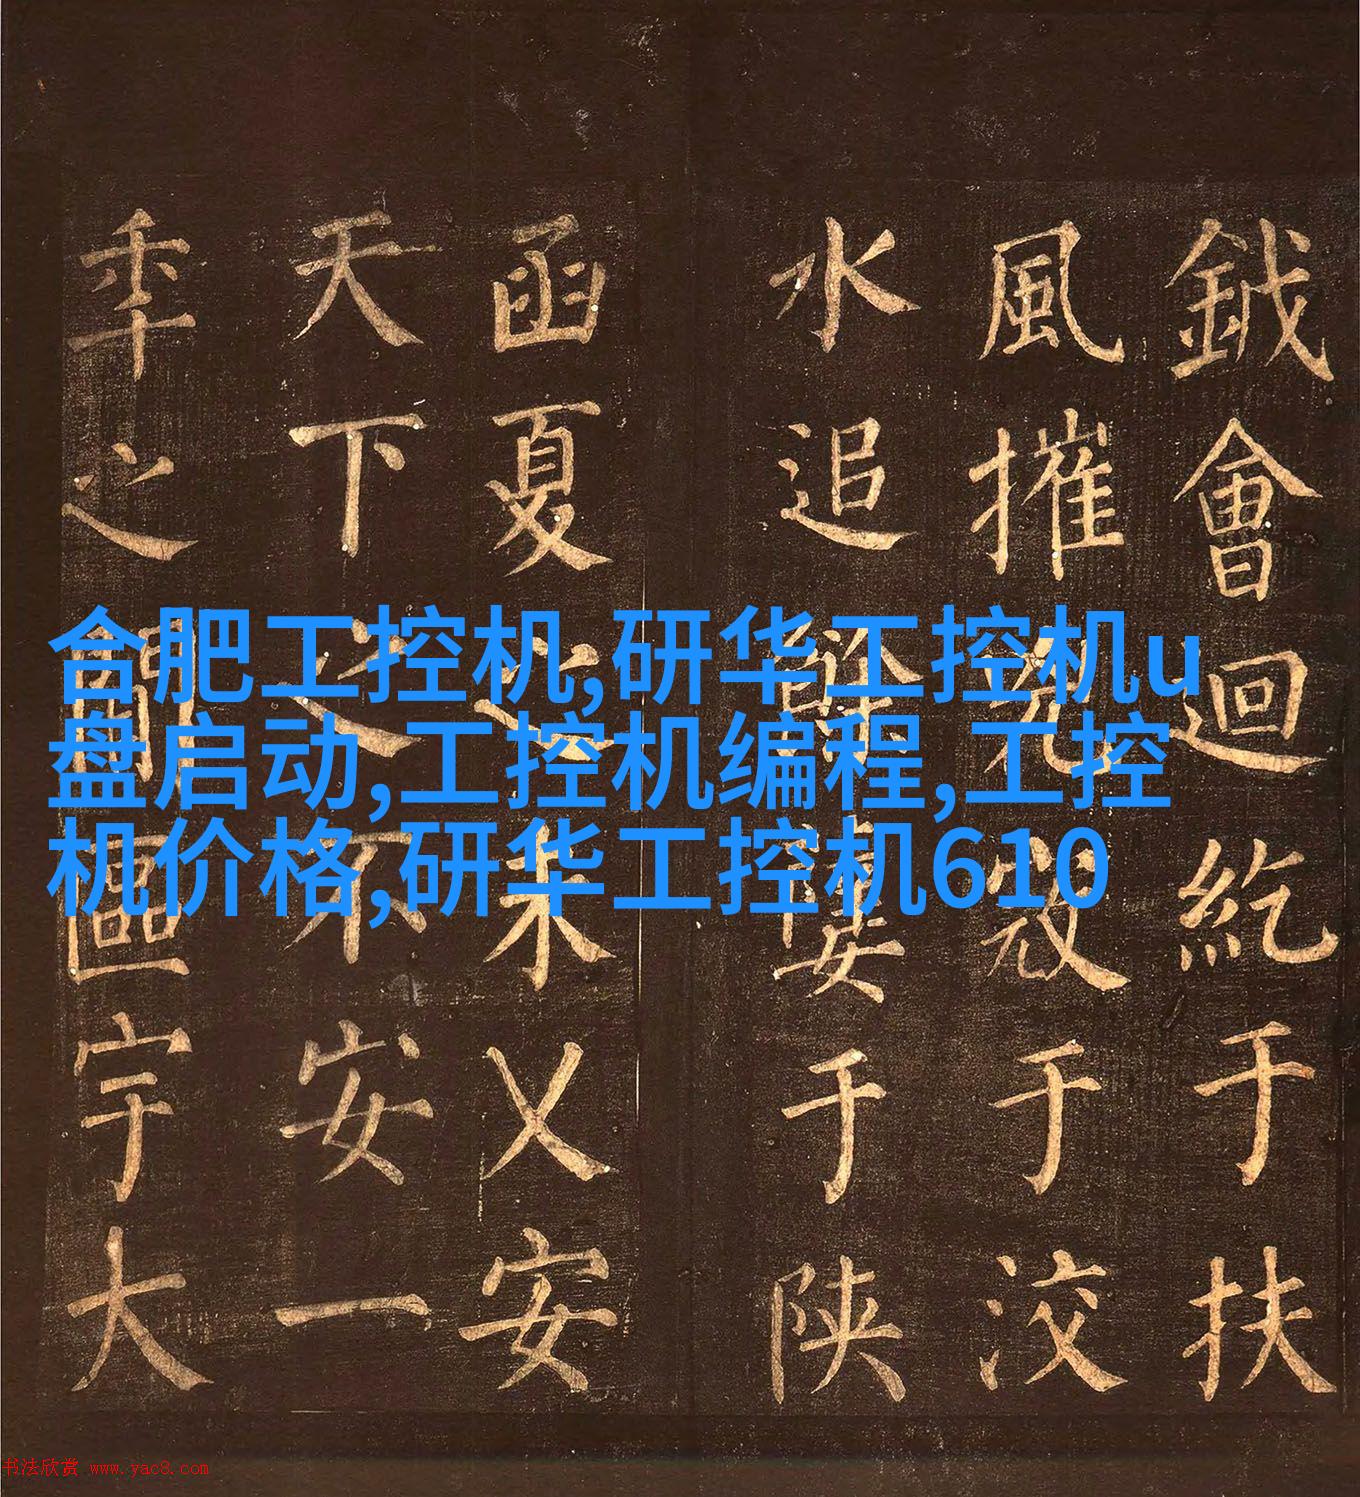 鉞會迴紇于扶
風摧于洨
水追于陝
函夏之未乂安
天下之不安一
年之區宇大
合肥工控机,研华工控机u
盘启动,工控机编程,工控
机价格,研华工控机610
书法欣赏 www.yac8.com